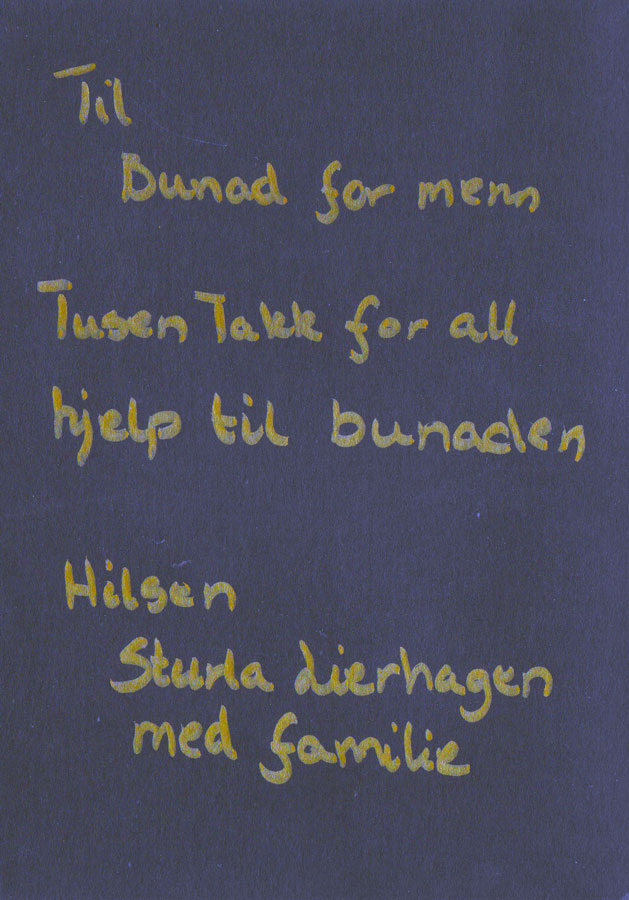 Til
Bunad for menn
Tusen Takk for all
hjelp til bunaden
Hilsen
Sturla Lierhagen
med familie